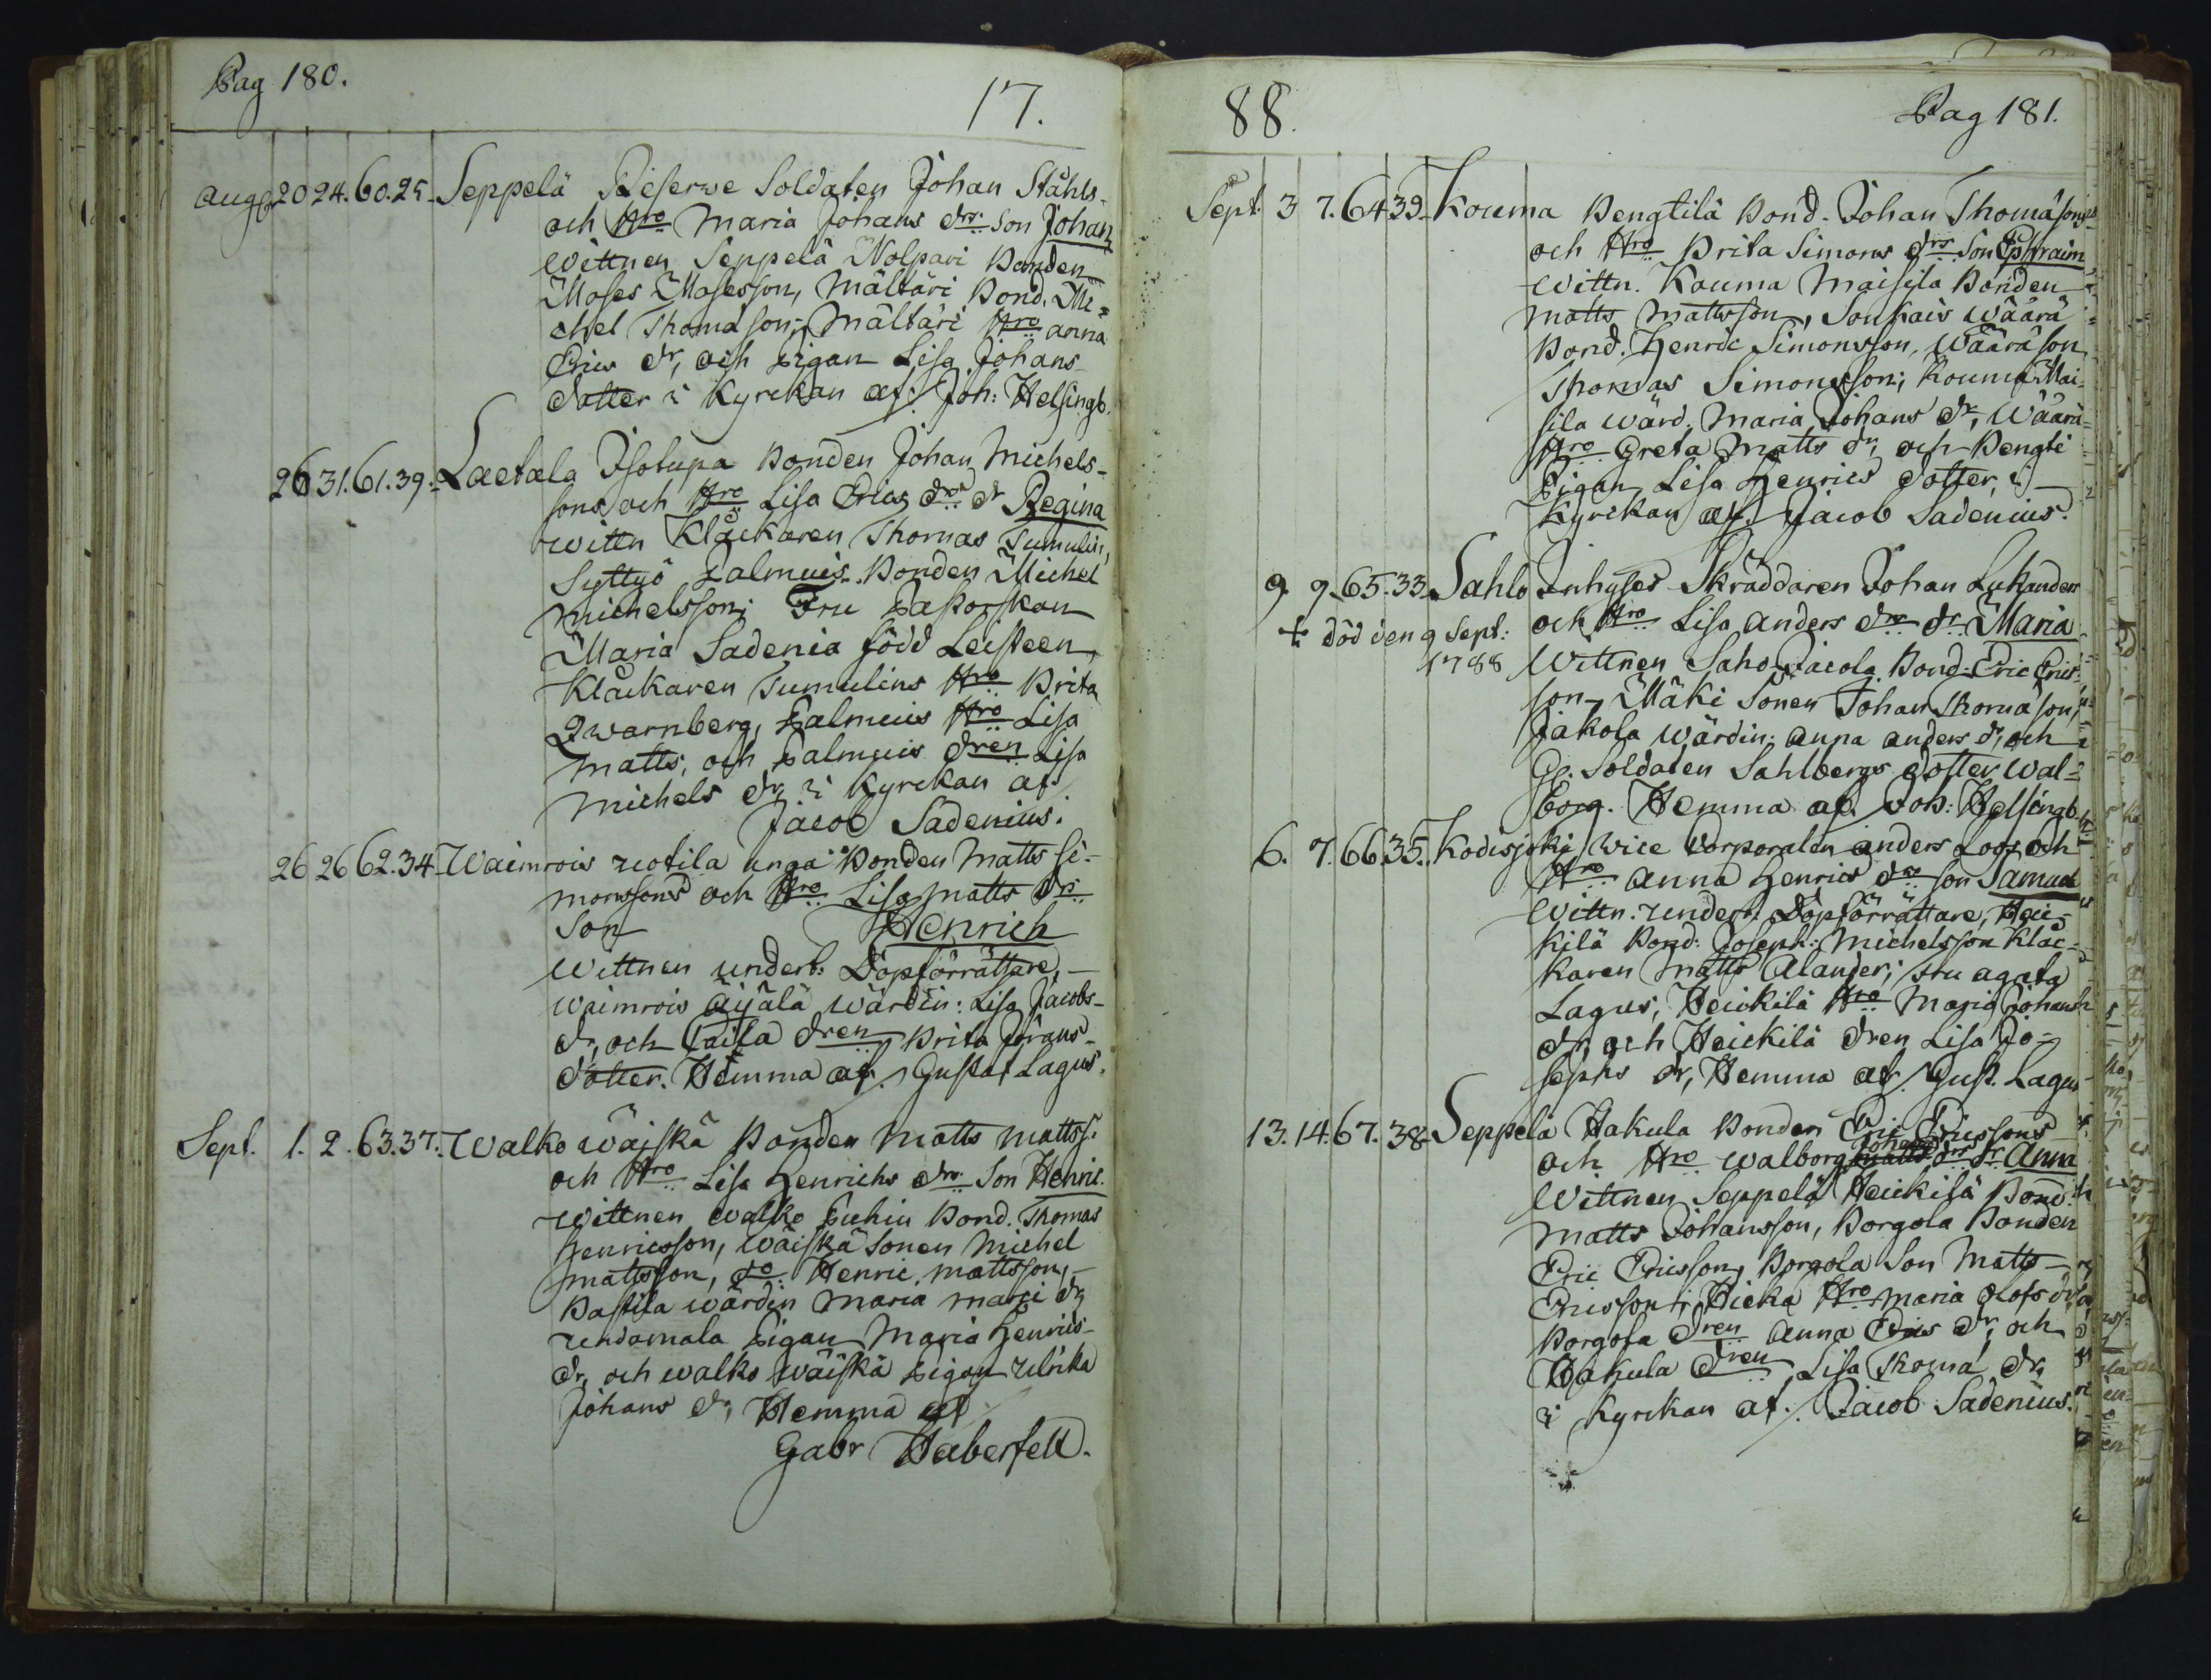 Pag 180.
17.
Aug. 20 24. 60. 25. Seppelä Reserve Soldaten Johan Ståhls
och Hro Maria Johans drs Son Johan
Wittnen Seppelä Nolpari Bonden
Moses Mosesson, Mältäri Bond. Mi=
chel Thomasson; Mältäri Hro Anna
Erics dr, och Pigan Lisa Johans
dotter i Kyrckan af Joh: Helsingb.
26 31. 61. 39. Laetala Isotupa Bonden Johan Michels-
sons och Hro Lisa Erics drs dr Regina
wittn Klåckaren Thomas Tumulin,
Syttyö Palmuis Bonden Michel
Michelsson; Fru
Maria Sadenia född Leisteen,
Klåckaren Tumulins Hro Brita
Qwarnberg, Palmuis Hro Lisa
Matts, och Palmuis dren Lisa
Michels dr, i Kyrckan af
Jacob Sadenius.
26 26 62. 34. Waimrois Uotila unga Bonden Matts Si-
monssons och Hro Lisa Matts drs
Son Henrich
Wittnen undert: Döpförrättare,
Waimrois Äijälä Wärdin: Lisa Jacobs-
dr, och Caila dren Brita Jörans-
dotter. Hemma af. Gustaf Lagus.
Sept. 1. 2. 63. 37. Walko Wäiskä Bonden Matts Matts s:
och Hro Lisa Henrichs drs Son Henric.
Wittnen Walko Bond. Thomas
Henricsson, Wäiskä Sonen Michel
Mattsson, do Henric Mattsson,
Pastila Wärdin Maria Matts dr,
Undamala Pigan Maria Henrics-
dr, och Walko Wäiskä Pigan Ulrika
Johans dr, Hemma af
Gabr Haberfelt.
88.
Pag 181.
Sept. 3 7. 64 39. Kouma Bengtilä Bond. Johan Thomassons
och Hro Brita Simons drs Son Ephraim
Wittn. Kouma Maisila Bonden
Matts Mattsson, Sonkais Wäärä
Bond. Henric Simonsson, Wäärä son
Thomas Simonsson; Kouma Mai-
sila Wärd. Maria Johans dr, Wäärä
Hro Greta Matts dr, och Bengti
Pigan Lisa Henrics dotter, i
Kyrckan af. Jacob Sadenius.
9. 9. 65. 33. Sahlo Inhyses Skräddaren Johan Lukander
+ död den 9 Sept: och Hro Lisa Anders drs dr Maria
1788 Wittnen Saho Jacola Bond: Eric Erics-
son, Mäki Sonen Johan Thomasson,
Jakola Wärdin: Anna Anders dr, och
Gl. Soldaten Sahlbergs dotter Wal-
borg. Hemma af. Joh: Helsingb.
6. 7. 66 35. Kodisjoki Vice Corporalen Anders Loos och
Hro Anna Henrics drs son Samuel
Wittn. undert: Döpförrättare, Hei-
kilä Bond: Joseph: Michelsson Klåc-
karen Matts Alander; Fru Agata
Lagus, Heickilä Hro Maria Johans
dr, och Heickilä dren Lisa Jo-
sephs dr, Hemma af. Gust. Lagus
13. 14. 67. 38. Seppelä Hakula Bonden Eric Ericssons
och Hro Walborg Matts Johans drs dr Anna
Wittnen Seppelä Heickilä Bond:
Matts Johansson, Borgola Bonden
Eric Ericsson, Borgola Son Matts
Ericsson; Hicka Hro Maria Olofs dr,
Borgola dren Anna Erics dr, och
Hakula dren Lisa Thoma dr,
i Kyrckan af. Jacob Sadenius.